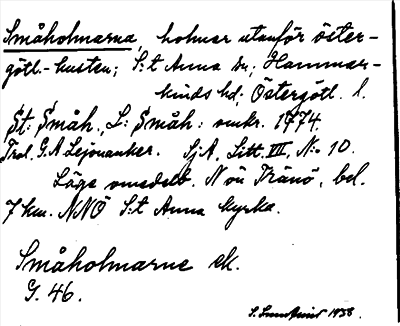 Småholmarna, holmar utanför öster-
götl.-kusten; S:t Anna sn; Hammar-
kinds hd; Östergötl. l.
St: Småh., L: Småh: omkr. 1774.
Trol. G. A Lejonanker. SjA, Litt. III, N:o 10.
Läge omedelb. N öu Tränö, bel.
7 km. NNÖ S:t Anna kyrka.
Småholmarne ek.
G. 46.
S. 1938.